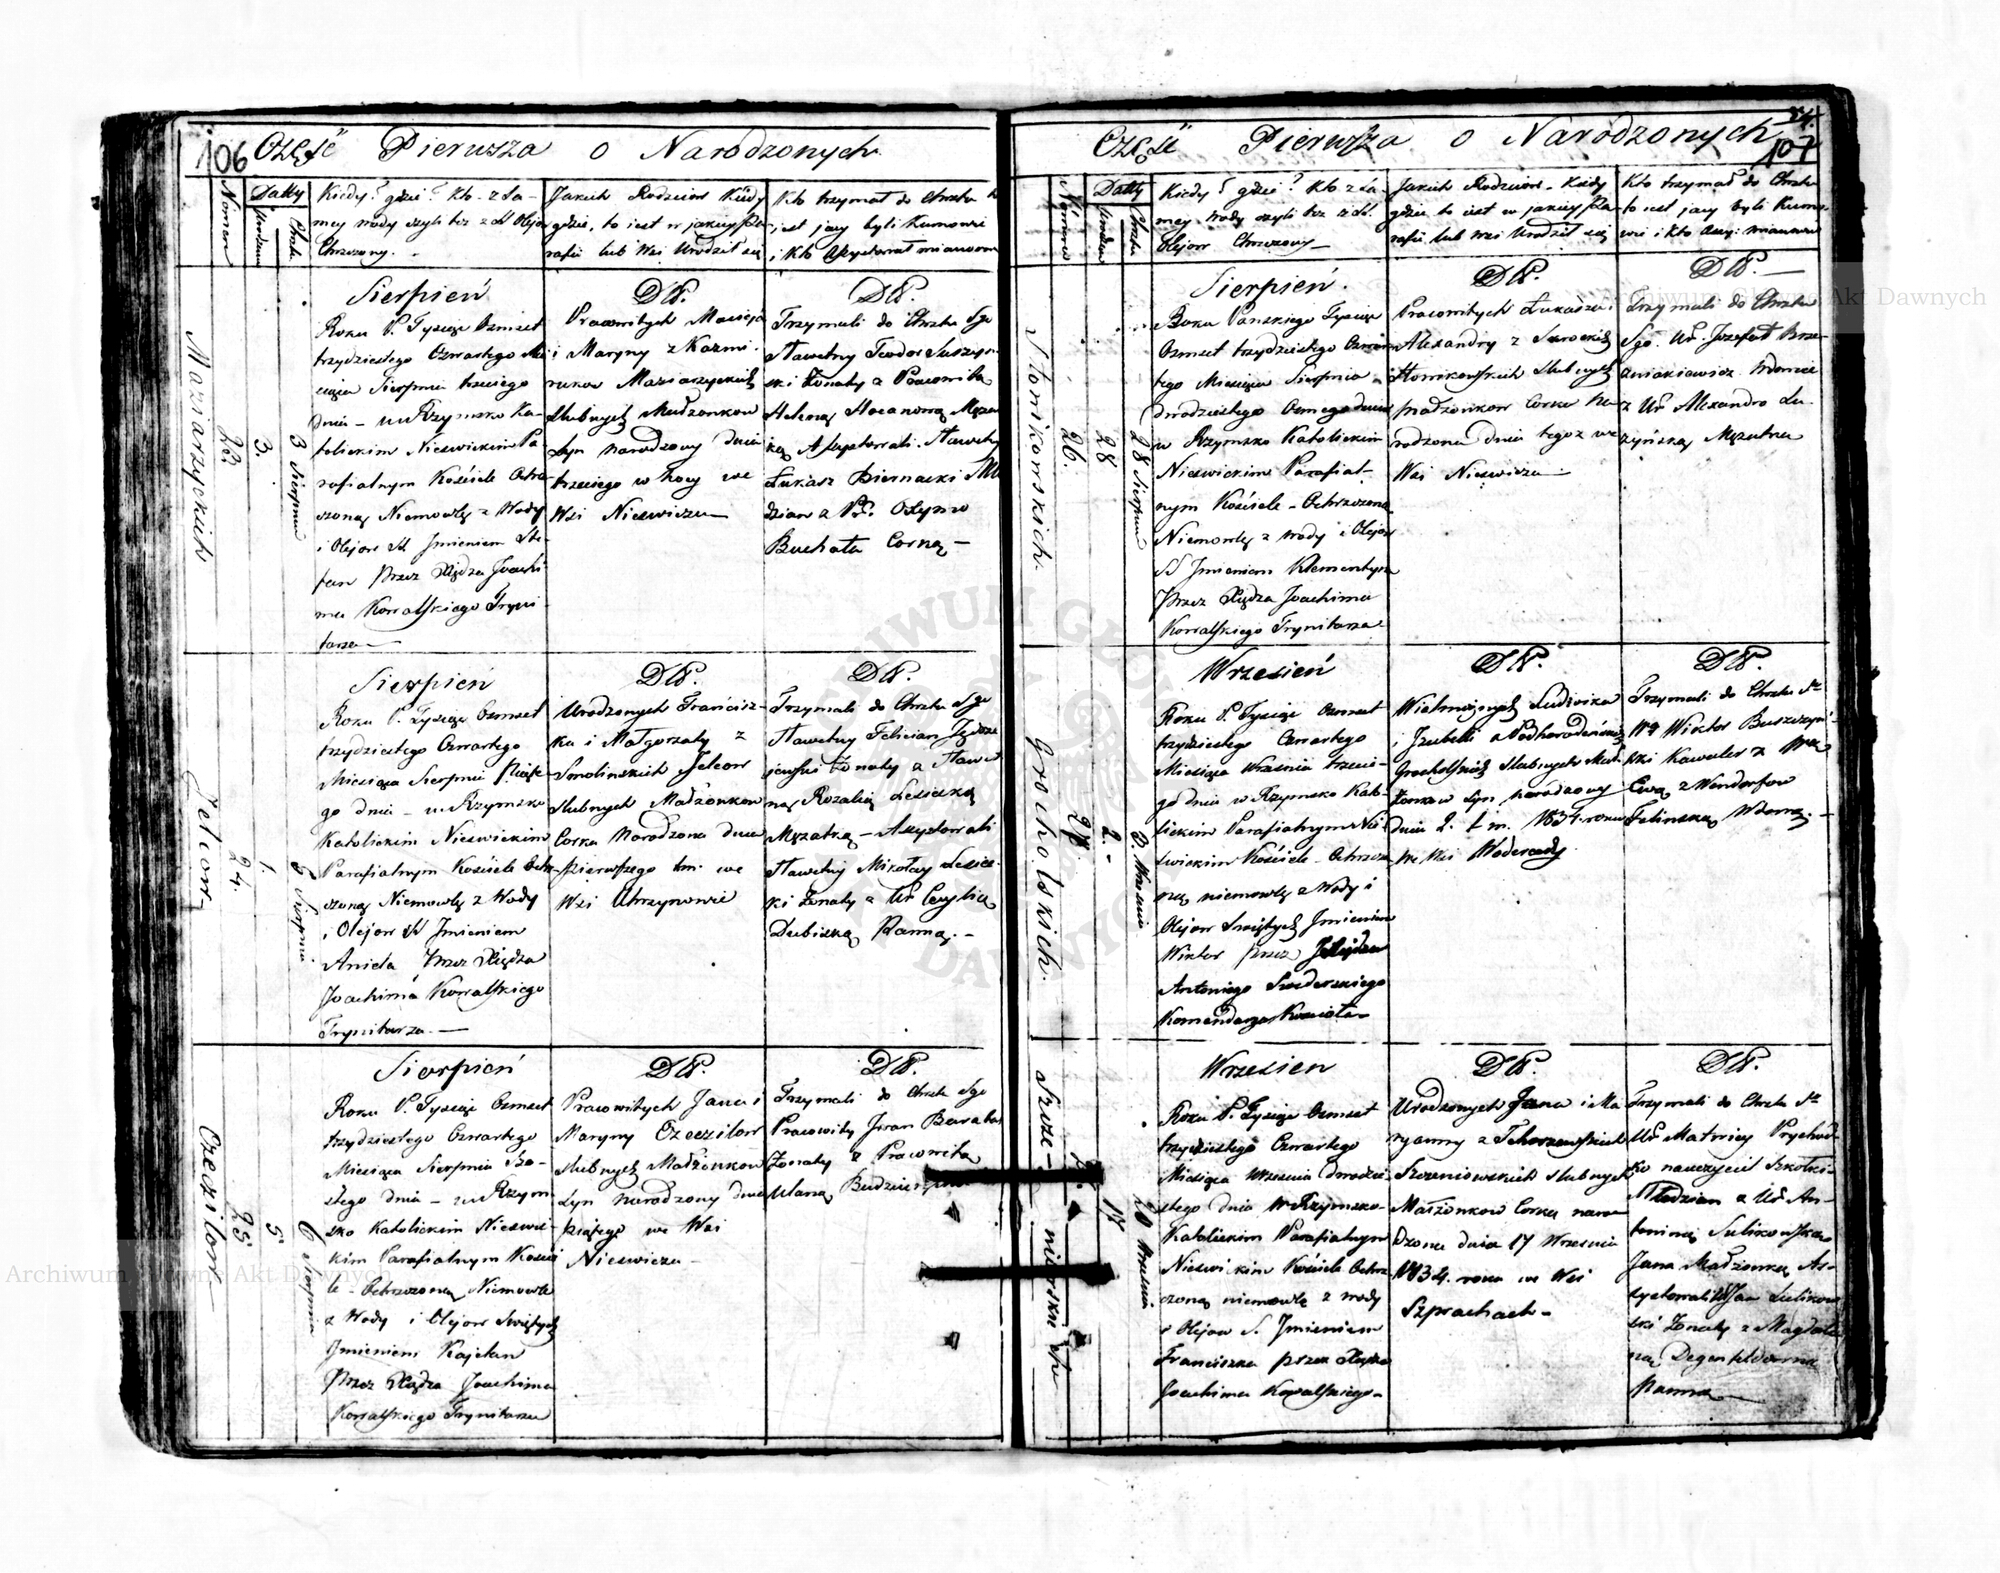 106 Część Pierwsza o Narodzonych
Numer
Datty
Urodzin
Chrztu
Kiedy? gdzie? Kto z Sa-
mey wody czyli też z SS Olejow
Chrzczony.
Jakich Rodzicow Kiedy
gdzie, to iest w jakiey Pa-
rafii lub Wsi Urodził się
Kto trzymał do Chrztu to
jest jacy byli Kumowie
i Kto Assystował mianowi
Maziarzyckich
23
3.
3 Sierpnia
Sierpień
Roku P. Tysiąc Osmset
trzydziestego Czwartego Mie
siąca Sierpnia trzeciego
dnia - w Rzymsko Ka-
tolickim Nieswickim Pa-
rafialnym Kościele Ochrz
czone Niemowlę z Wody
i Olejow SS Jmieniem Ste-
fan Przez Xiędza Joachi-
ma Kowalskiego Tryni-
tarza
DW.
Pracowitych Macieja
i Maryny z Kazmi-
rukow Maziarzyckich
Slubnych Małżonkow
Syn narodzony dnia
trzeciego w nocy we
Wsi Nieswiczu
DW.
Trzymali do Chrztu Sgo
Sławetny Teodor Suszyń-
ski Żonaty z Pracowitą
Heleną Mężat
ką Assystowali Sławetny
Łukasz Biernacki Mło
dzian z
Buchała Corną
Jelcow
24.
1.
5 Sierpnia
Sierpień
Roku P. Tysiąc Osmset
trzydziestego Czwartego
Miesiąca Sierpnia Piąte
go dnia - w Rzymsko
Katolickim Nieswickim
Parafialnym Kościele Ochrz
czone Niemowlę z Wody
i Olejow SS Jmieniem
Aniela Przez Xiędza
Joachima Kowalskiego
Trynitarza
DW.
Urodzonych Francisz-
ka i Małgorzaty z
Smolinskich Jelcow
Slubnych Małżonkow
Corka Narodzona dnia
pierwszego tm. we
Wsi Uhrynowie
DW.
Trzymali do Chrztu Sgo
Sławetny Felician Jędrze
jewski Żonaty z Sławet
ną Rozalią Lesicką
Mężatką - Assystowali
Sławetny Mikołay Lesic
ki Żonaty z Ur Cecylią
Dubiską Panną.
Czeczilow
25
5
6 Sierpnia
Sierpień
Roku P. Tysiąc Osmset
trzydziestego Czwartego
Miesiąca Sierpnia Szo-
stego dnia - w Rzym
sko Katolickim Nieswic
kim Parafialnym Koście
le - Ochrzczone Niemowle
z Wody i Olejow Swiętych
Jmieniem Kajetan
Przez Xiędza Joachima
Kowalskiego Trynitarza
DW.
Pracowitych Jana i
Maryny Czeczilow
slubnych Małżonkow
Syn narodzony dnia
piątego we Wsi
Nieswiczu
DW.
Trzymali do Chrztu Sgo
Pracowity Jwan Baraba
Żonaty z Pracowitą
Ulaną
Część Pierwsza o Narodzonych
107
Numer
Datty
Urodzin
Chrztu
Kiedy? gdzie? Kto z Sa-
mey wody czyli tez z SS.
Olejow Chrzczony
Jakich Rodzicow - Kiedy
gdzie to iest w jakiey Pa-
rafii lub wsi Urodził się
Kto trzymał do Chrztu
to iest jacy byli Kumo-
wie i Kto Assy: mianowi
Słonikowskich
26.
28
28 Sierpnia
Sierpień.
Roku Panskiego Tysiąc
Osmset trzydziestego Czwar
tego Miesiąca Sierpnia
dwudziestego Osmego dnia
w Rzymsko Katolickim
Nieswickim Parafial-
nym Kościele - Ochrzczone
Niemowlę z wody i Olejow
SS Jmieniem Klementyna
Przez Xiędza Joachima
Kowalskiego Trynitarza
DW.
Pracowitych Łukasza i
Alexandry z
Słonikowskich Slubnych
małżonkow Corka na
rodzona dnia tegoż we
Wsi Nieswiczu
DW.
Trzymali do Chrztu
Sgo. Ur. Jozefat
z Ur Alexandrą Lu
czyńską Mężatką
Grocholskich
27
2.
3. Wrzesnia
Wrzesień
Roku P. Tysiąc Osmset
trzydziestego Czwartego
Miesiąca Wrzesnia trzecie-
go dnia w Rzymsko Kato-
lickim Parafialnym Nie-
swickim Kościele - Ochrzczo
ne niemowle z Wody i
Olejow Swiętych Jmieniem
Wiktor przez Xiędza
Antoniego Swiderskiego
Komendarza Kościoła
DW.
Wielmożnych Ludwika
i Jzabelli z Podhorodeńskich
Grocholskich slubnych Mał-
żonkow Syn narodzony
dnia 2. t. m. 1834. roku
we Wsi Woderady
DW.
Trzymali do Chrztu Sgo
Wy Wiktor Buszczyń-
ski Kawaler z Wną
Ewą z Wendorfow
Felinską Wdową.
Szcze-
niowskie ta
17
20 Wrzesnia
Wrzesien
Roku P. Tysiąc Osmset
trzydziestego Czwartego
Miesiąca Wrzesnia dwudzie
stego dnia w Rzymsko-
Katolickim Parafialnym
Nieswickim Kościele Ochrz-
czone niemowle z wody
i Olejow S. Jmieniem
Franciszka przez Xiędza
Joachima Kowalskiego
DW.
Urodzonych Jana i Ma
ryanny z Tchorzewskich
Szczeniowskich slubnych
Małżonkow Corka naro-
dzona dnia 17 Wrzesnia
1834. roku we Wsi
Szprachach
DW.
Trzymali do Chrztu Sgo
Ur Matwiey Prychod
ko nauczyciel Szkolki
Młodzian z Ur. An-
toniną Sulikowską
Jana Małżonką As-
systowali Ur Jan Sulikow
ski Żonaty z Magdale
ną
Panną
Archiwum Główne Akt Dawnych
Archiwum Główne Akt Dawnych